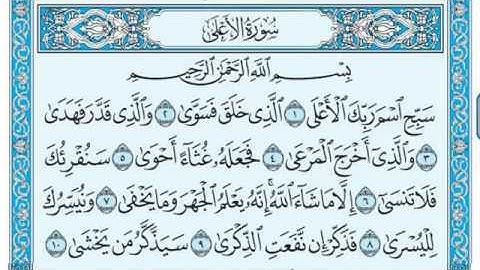 سُورَةُ الأَعْلَى
بِسْمِ اللَّهِ الرَّحْمَنِ الرَّحِيمِ
سَبِّحِ اسْمَ رَبِّكَ الْأَعْلَى ١ الَّذِي خَلَقَ فَسَوَّى ٢ وَالَّذِي قَدَّرَ فَهَدَى
٣ وَالَّذِي أَخْرَجَ الْمَرْعَى ٤ فَجَعَلَهُ غُثَاءً أَحْوَى ٥ سَنُقْرِئُكَ
فَلَا تَنْسَى ٦ إِلَّا مَا شَاءَ اللَّهُ إِنَّهُ يَعْلَمُ الْجَهْرَ وَمَا يَخْفَى ٧ وَنُيَسِّرُكَ
لِلْيُسْرَى ٨ فَذَكِّرْ إِنْ نَفَعَتِ الذِّكْرَى ٩ سَيَذَّكَّرُ مَنْ يَخْشَى ١٠